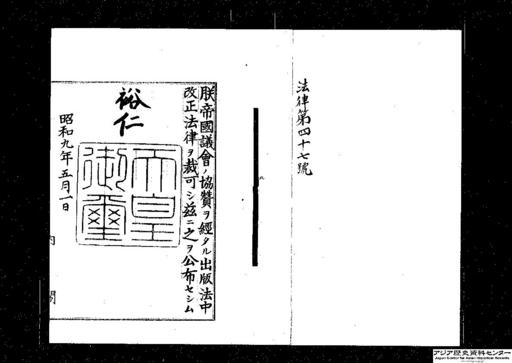 法律第四十七號
朕帝國議會ノ協賛ヲ經タル出版法中
改正法律ヲ裁可シ茲ニ之ヲ公布セシム
裕仁
天皇
御璽
昭和九年五月一日
内閣
アジア歴史資料センター
Japan Center for Asian Historical Records